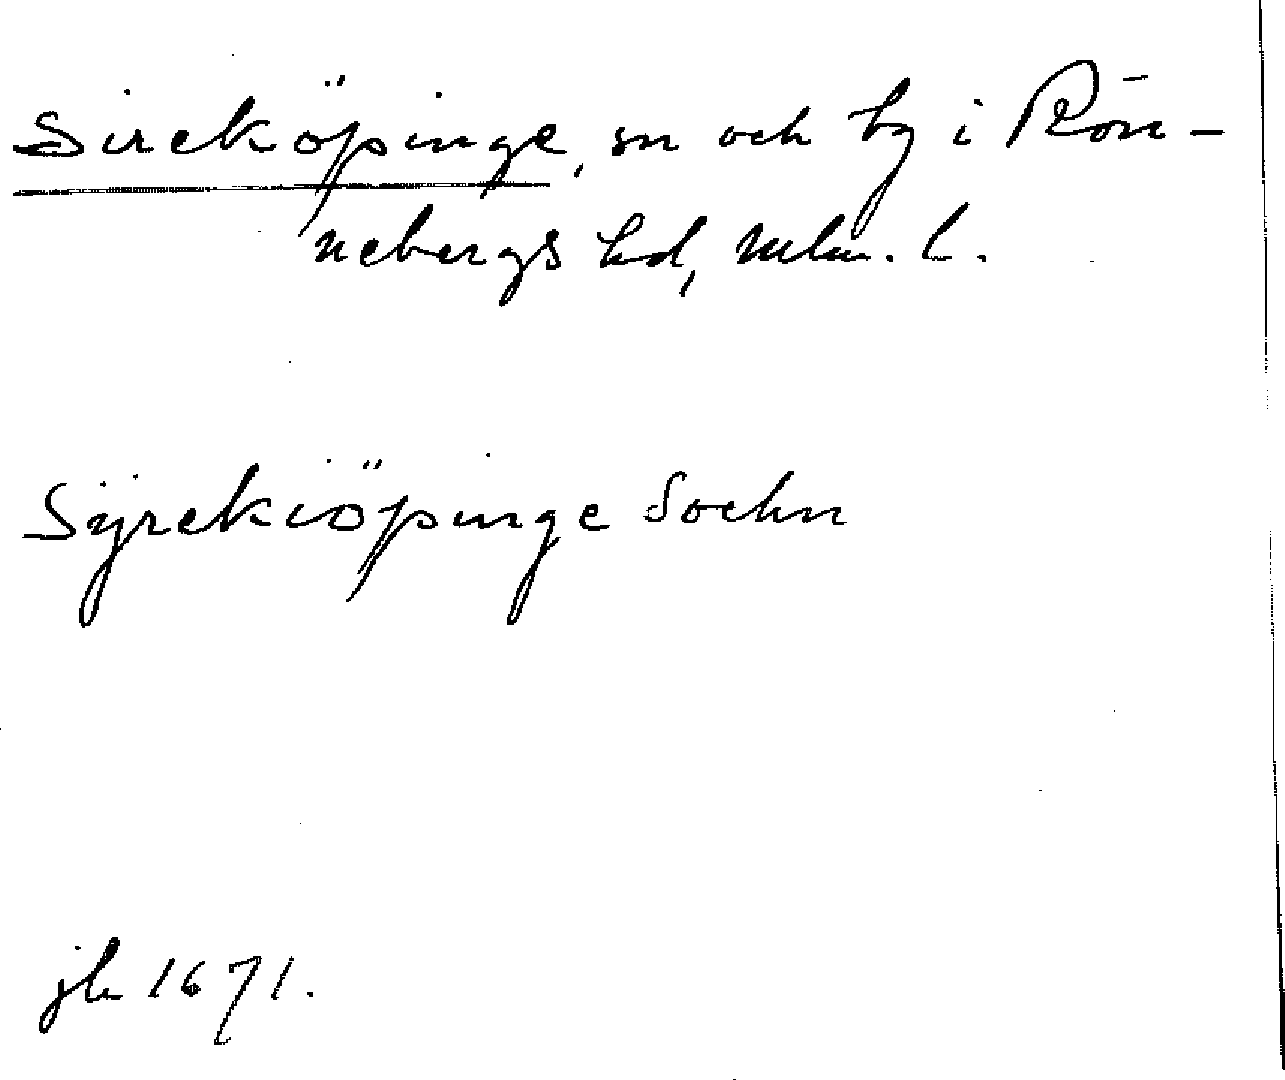 Sireköpinge, sn och by i Rön-
nebergs hd, Mlm. l.
Sÿrekiöpinge Sochn
jb 1671.